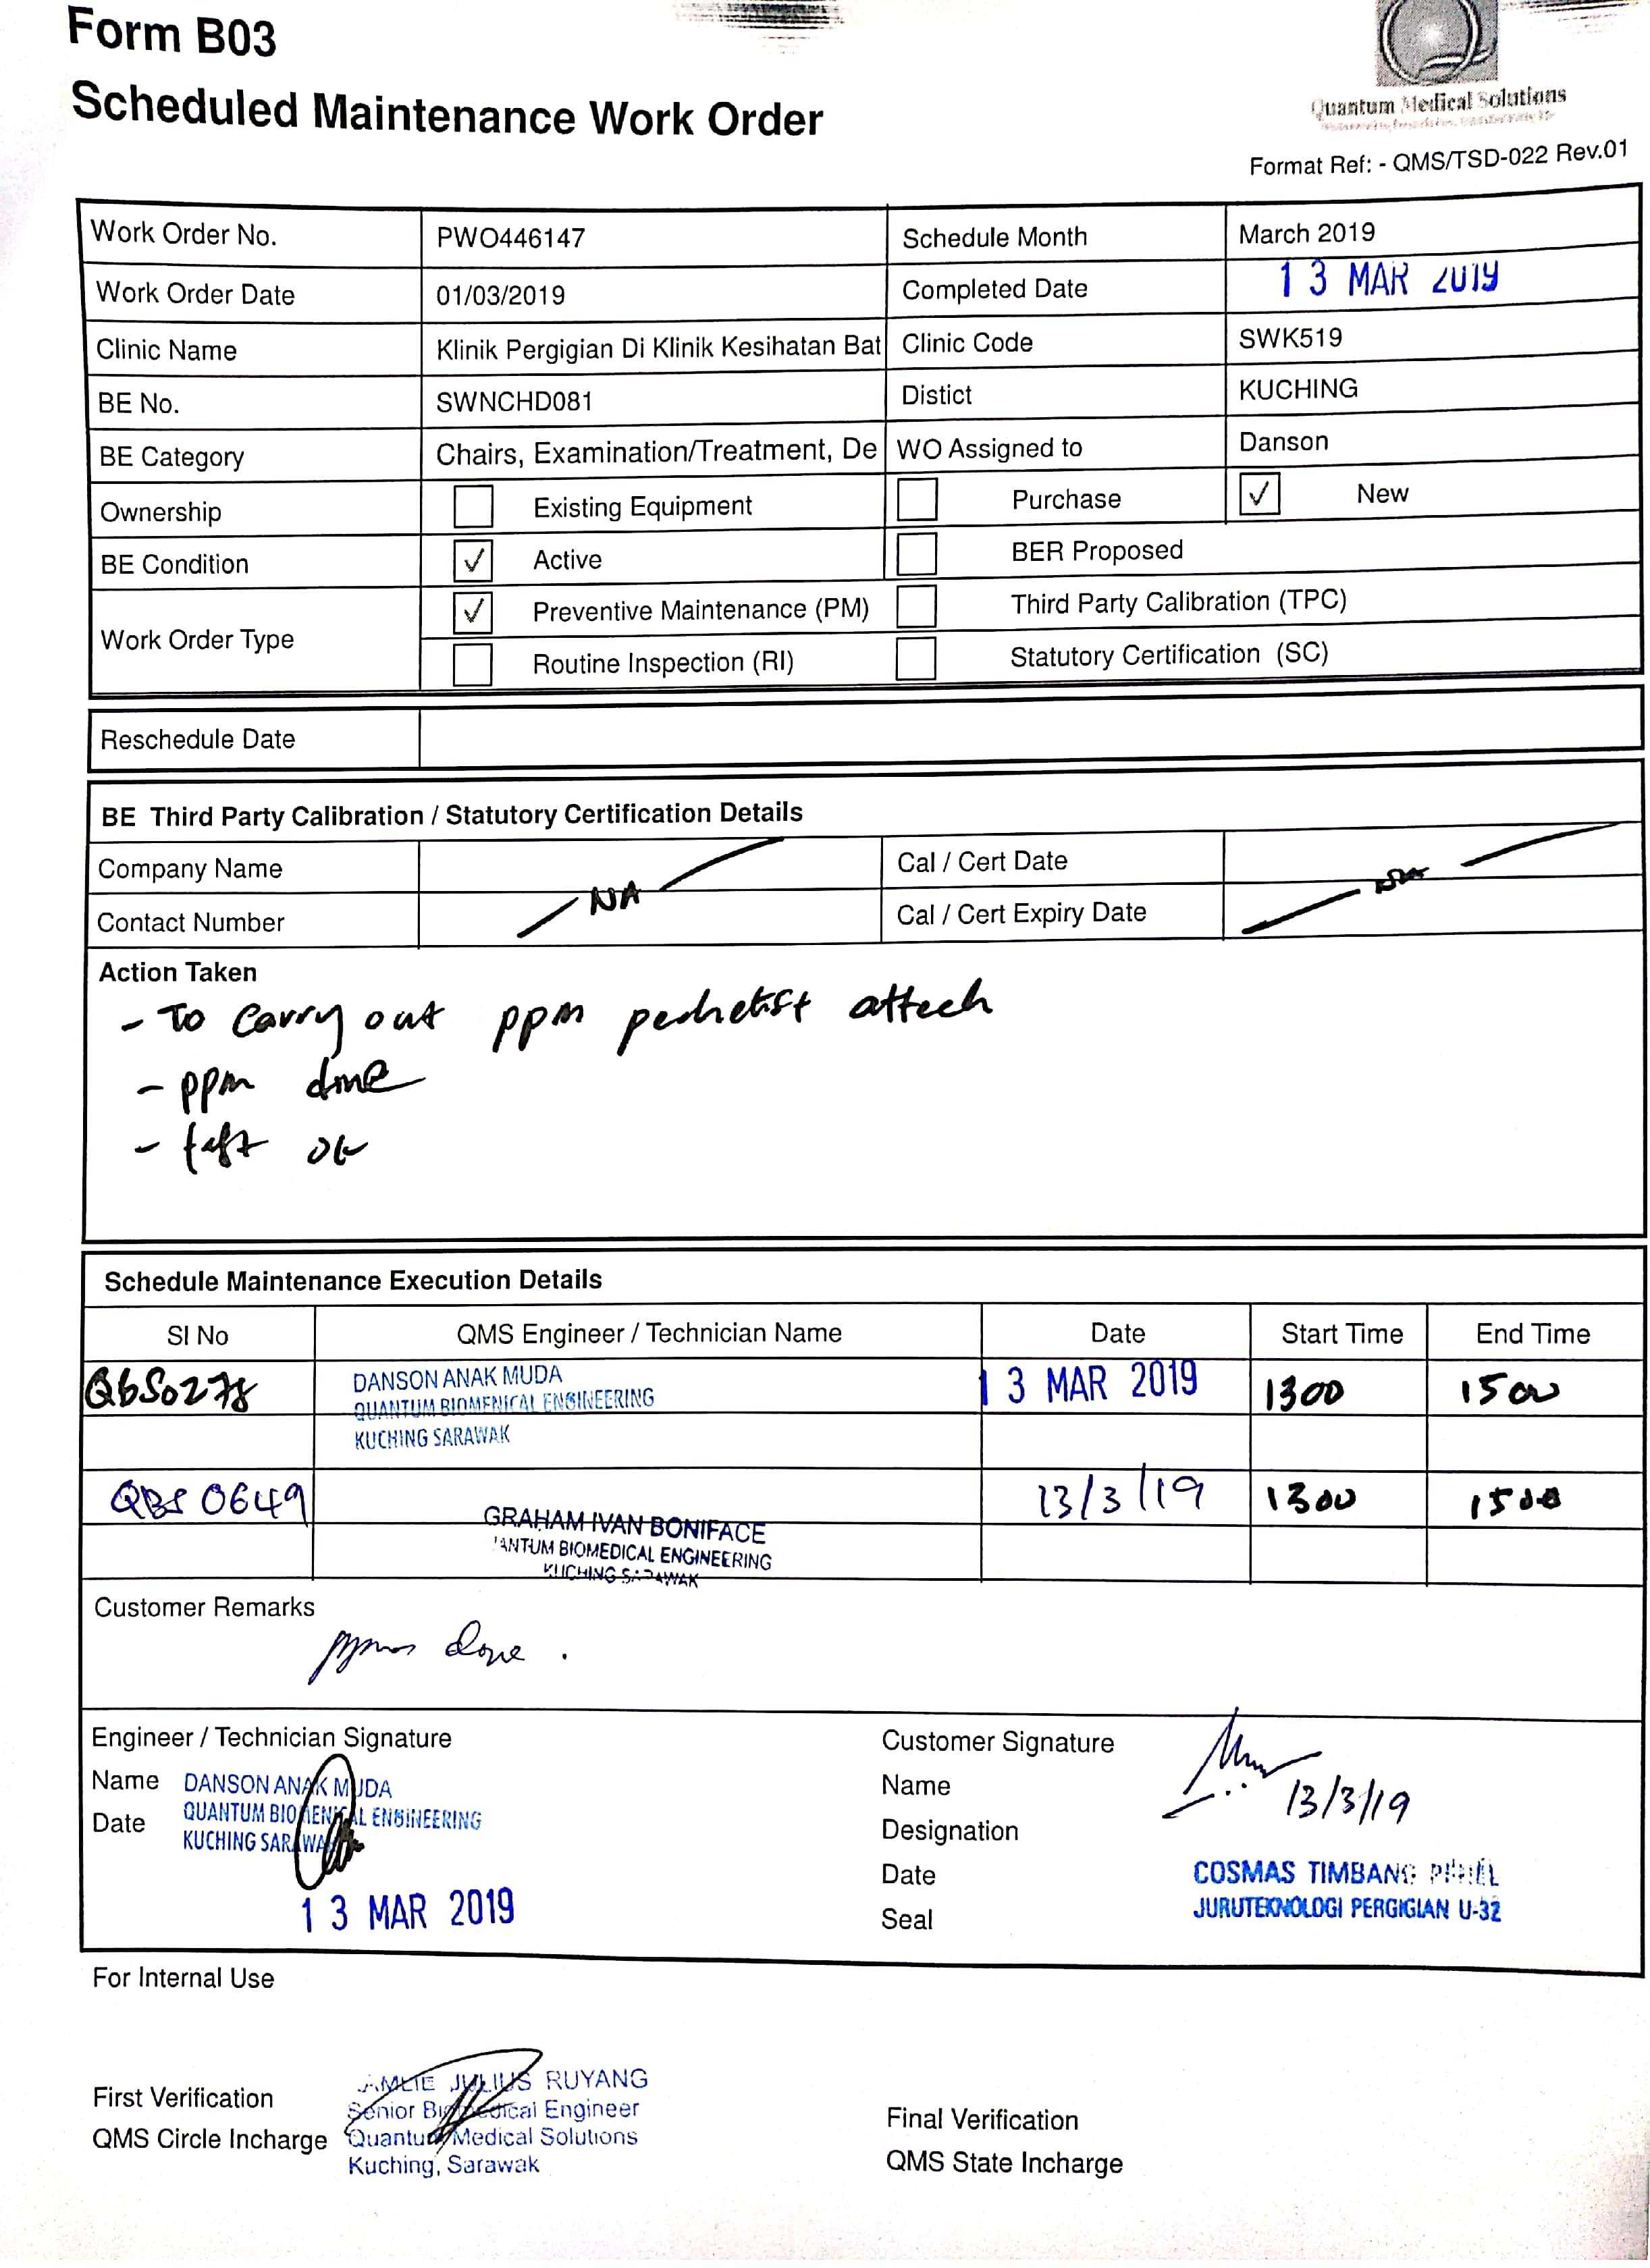 Form B03
Scheduled Maintenance Work Order
Quantum Medical Solutions
Format Ref: - QMS/TSD-022 Rev.01
Work Order No. PWO446147 Schedule Month March 2019
Work Order Date 01/03/2019 Completed Date 13 MAR 2019
Clinic Name Klinik Pergigian Di Klinik Kesihatan Bat Clinic Code SWK519
BE No. SWNCHD081 Distict KUCHING
BE Category Chairs, Examination/Treatment, De WO Assigned to Danson
Ownership Existing Equipment Purchase ✓ New
BE Condition ✓ Active BER Proposed
Work Order Type ✓ Preventive Maintenance (PM) Third Party Calibration (TPC)
Routine Inspection (RI) Statutory Certification (SC)
Reschedule Date
BE Third Party Calibration / Statutory Certification Details
Company Name NA Cal / Cert Date
Contact Number Cal / Cert Expiry Date
Action Taken
- To carry out ppm attach
- ppm done
- test ok
Schedule Maintenance Execution Details
SI No QMS Engineer / Technician Name Date Start Time End Time
QBS0278 DANSON ANAK MUDA 13 MAR 2019 1300 1500
QUANTUM BIOMENICAL ENGINEERING
KUCHING SARAWAK
QBS 0649 GRAHAM IVAN BONIFACE 13/3/19 1300 1500
ANTUM BIOMEDICAL ENGINEERING
KUCHING SARAWAK
Customer Remarks
done.
Engineer / Technician Signature Customer Signature
Name DANSON ANAK MUDA Name
Date QUANTUM BIOMENICAL ENGINEERING 13/3/19
KUCHING SARAWAK Designation
13 MAR 2019 Date COSMAS TIMBANG
Seal JURUTEKNOLOGI PERGIGIAN U-32
For Internal Use
First Verification JULIUS RUYANG
Senior Biomedical Engineer Final Verification
QMS Circle Incharge Quantum Medical Solutions QMS State Incharge
Kuching, Sarawak